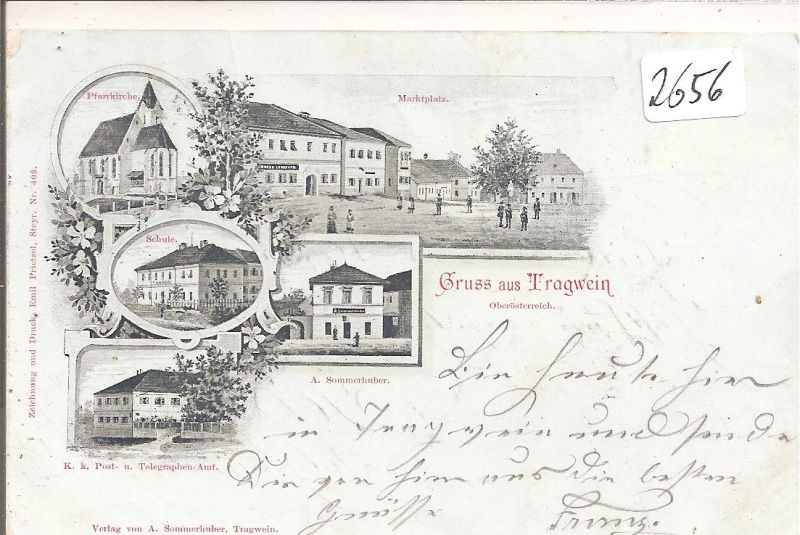 2656
Pfarrkirche.
Marktplatz.
Schule.
Gruss aus Tragwein
Oberösterreich.
A. Sommerhuber.
K. k. Post- u. Telegraphen-Amt.
Zeichnung und Druck, Emil Prietzel, Steyr. Nr. 408.
Bin heute hier
in Tragwein und sende
Dir von hier aus die besten
Grüsse Franz.
Verlag von A. Sommerhuber, Tragwein.